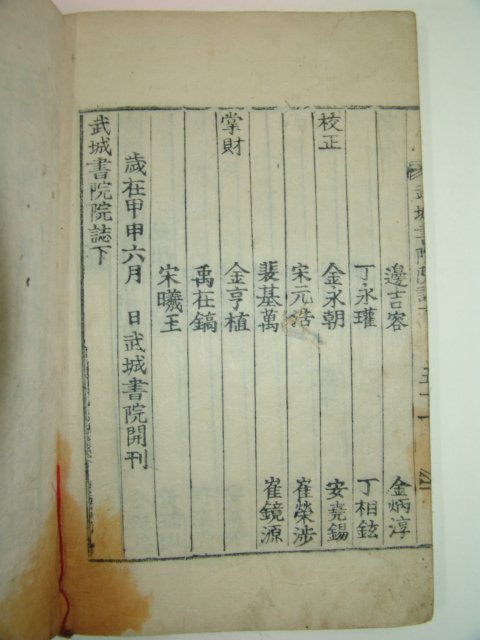 武城書院院誌下 五十一
邊吉容 金炳淳
丁永瓘 丁相鉉
校正 金永朝 安堯錫
宋元浩 崔榮涉
裴基萬 崔鏡源
掌財 金亨植
禹在鎬
宋曦王
歲在甲申六月 日武城書院開刊
武城書院院誌下